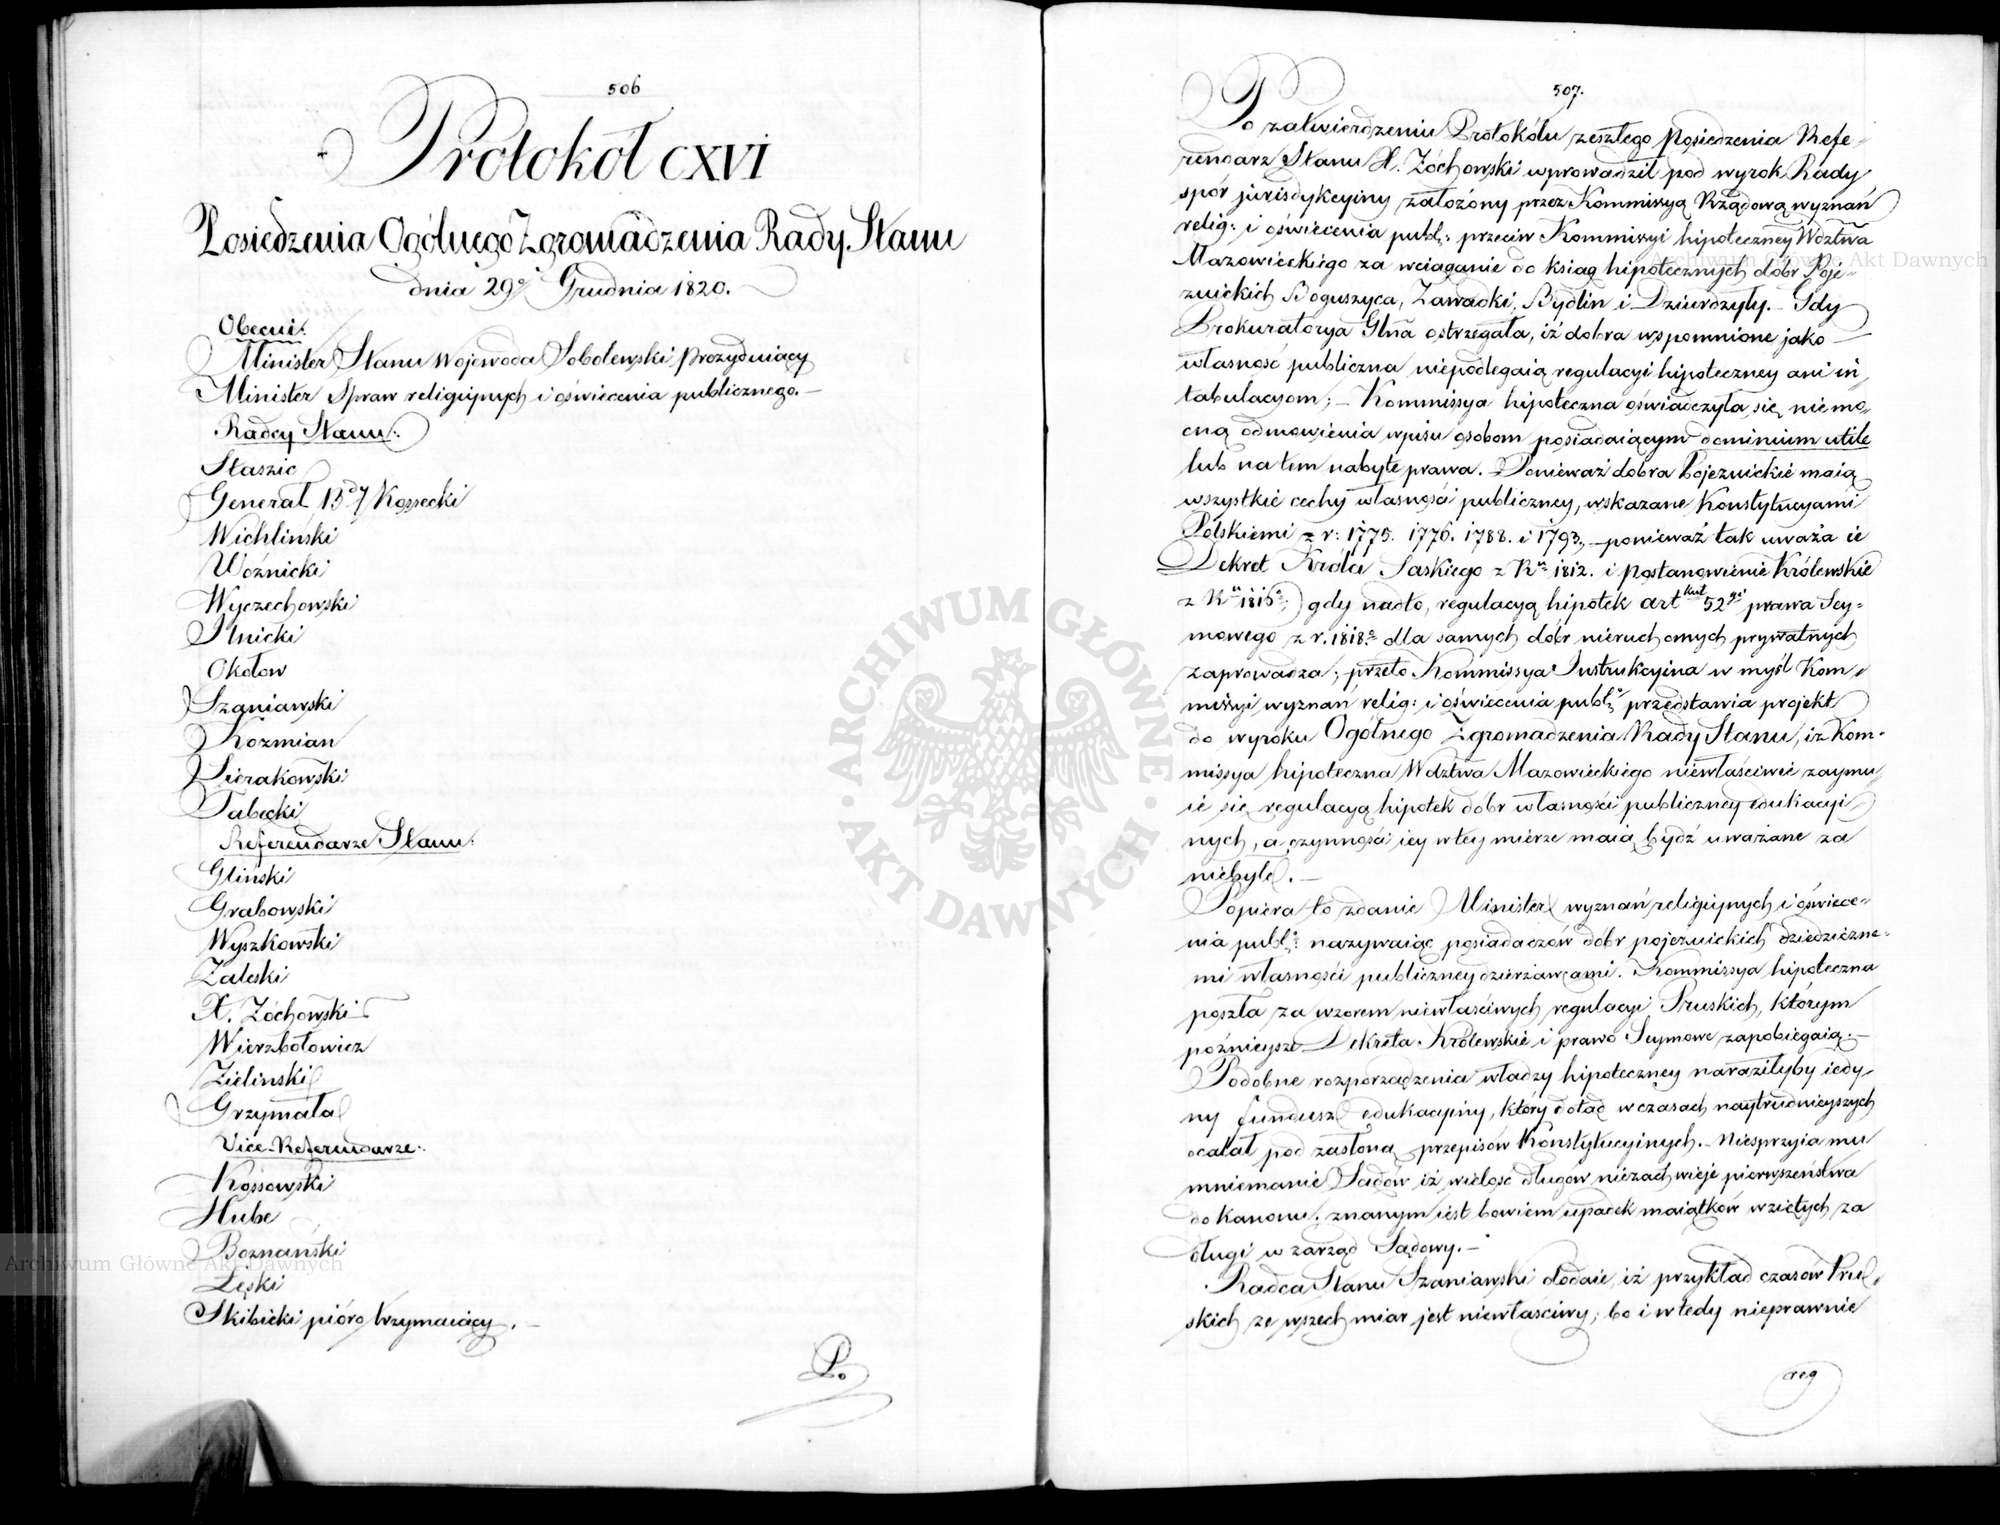 506
Protokół CXVI
Posiedzenia Ogólnego Zgromadzenia Rady Stanu
dnia 29º Grudnia 1820.
Obecni:
Minister Stanu Wojewoda Sobolewski Prezyduiący
Minister Spraw religiynych i oświecenia publicznego.
Radcy Stanu:
Staszic
Generał Kossecki
Wichliński
Woźnicki
Wyczechowski
Ilnicki
Okołow
Szaniawski
Koźmian
Sierakowski
Tabecki
Referendarze Stanu:
Gliński
Grabowski
Wyszkowski
Zaleski
X. Żochowski
Wierzbołowicz
Zieliński
Grzymała
Vice-Referendarze:
Kossowski
Hube
Boznański
Łęski
Skibicki pióro trzymaiący.
Po
507.
Po zatwierdzeniu Protokółu zeszłego Posiedzenia Refe-
rendarz Stanu X. Żochowski wprowadził pod wyrok Rady
spór jurisdykcyiny założony przez Kommissyą Rządową wyznań
relig: i oświecenia publ: przeciw Kommissyi hipoteczney Wdztwa
Mazowieckiego za wciąganie do ksiąg hipotecznych dóbr Poje-
zuickich Boguszyca, Zawadki, Bydlin i Dzierdzyły. – Gdy
Prokuratorya Glna ostrzegała, iż dobra wspomnione jako
własność publiczna niepodlegaią regulacyi hipoteczney ani in-
tabulacyom; – Kommissya hipoteczna oświadczyła się niemo-
cną odmówienia wpisu osobom posiadaiącym dominium utile
lub na tem nabyte prawa. – Ponieważ dobra Pojezuickie maią
wszystkie cechy własności publiczney, wskazane Konstytucyami
Polskiemi z r: 1775. 1776. 1788. i 1793, – ponieważ tak uważa ie
Dekret Króla Saskiego z Ru 1812. i Postanowienie Królewskie
z Ru 1816; gdy nadto, regulacyą hipotek art 52 prawa Sey-
mowego z r. 1818º dla samych dóbr nieruchomych prywatnych
zaprowadza; przeto Kommissya Instrukcyina w myśl Kom-
missyi wyznań relig: i oświecenia publ: przedstawia projekt
do wyroku Ogólnego Zgromadzenia Rady Stanu, iż Kom-
missya hipoteczna Wdztwa Mazowieckiego niewłaściwie zaymu-
ie się regulacyą hipotek dóbr własności publiczney edukacyi-
nych, a czynności iey w tey mierze maią bydź uważane za
niebyłe. –
Popiera to zdanie Minister wyznań religiynych i oświece-
nia publ: nazywaiąc posiadaczów dóbr pojezuickich dziedziczne-
mi własności publiczney dzierżawcami. Kommissya hipoteczna
poszła za wzorem niewłaściwych regulacyi Pruskich, którym
późnieysze Dekreta Królewskie i prawo Seymowe zapobiegaią. –
Podobne rozporządzenia władzy hipoteczney naraziłyby iedy-
ny fundusz edukacyiny, który dotąd w czasach naytrudnieyszych
ocalał pod zasłoną przepisów Konstytucyinych. – Niesprzyia mu
mniemanie Sądów iż wielość długów niezachwieje pierwszeństwa
do kanonu; znanym iest bowiem upadek maiątków wziętych za
długi w zarząd Sądowy. –
Radca Stanu Szaniawski dodaie, iż przykład czasów Pru-
skich ze wszech miar jest niewłaściwy; bo i wtedy nieprawnie
reg